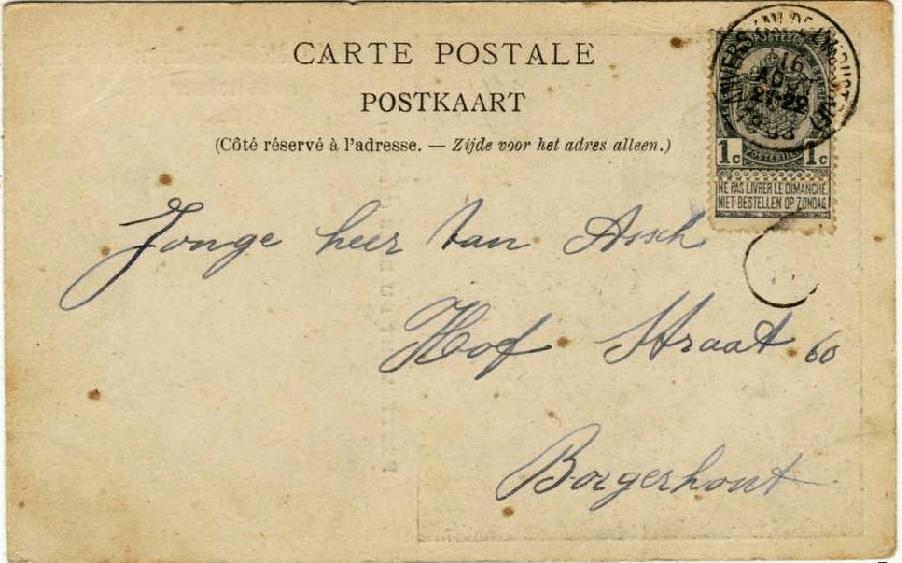 CARTE POSTALE
POSTKAART
(Côté réservé à l'adresse. — Zijde voor het adres alleen.)
1c 1c
NE PAS LIVRER LE DIMANCHE
NIET BESTELLEN OP ZONDAG
Jonge heer Van Assch
Hof Straat 60
Borgerhout